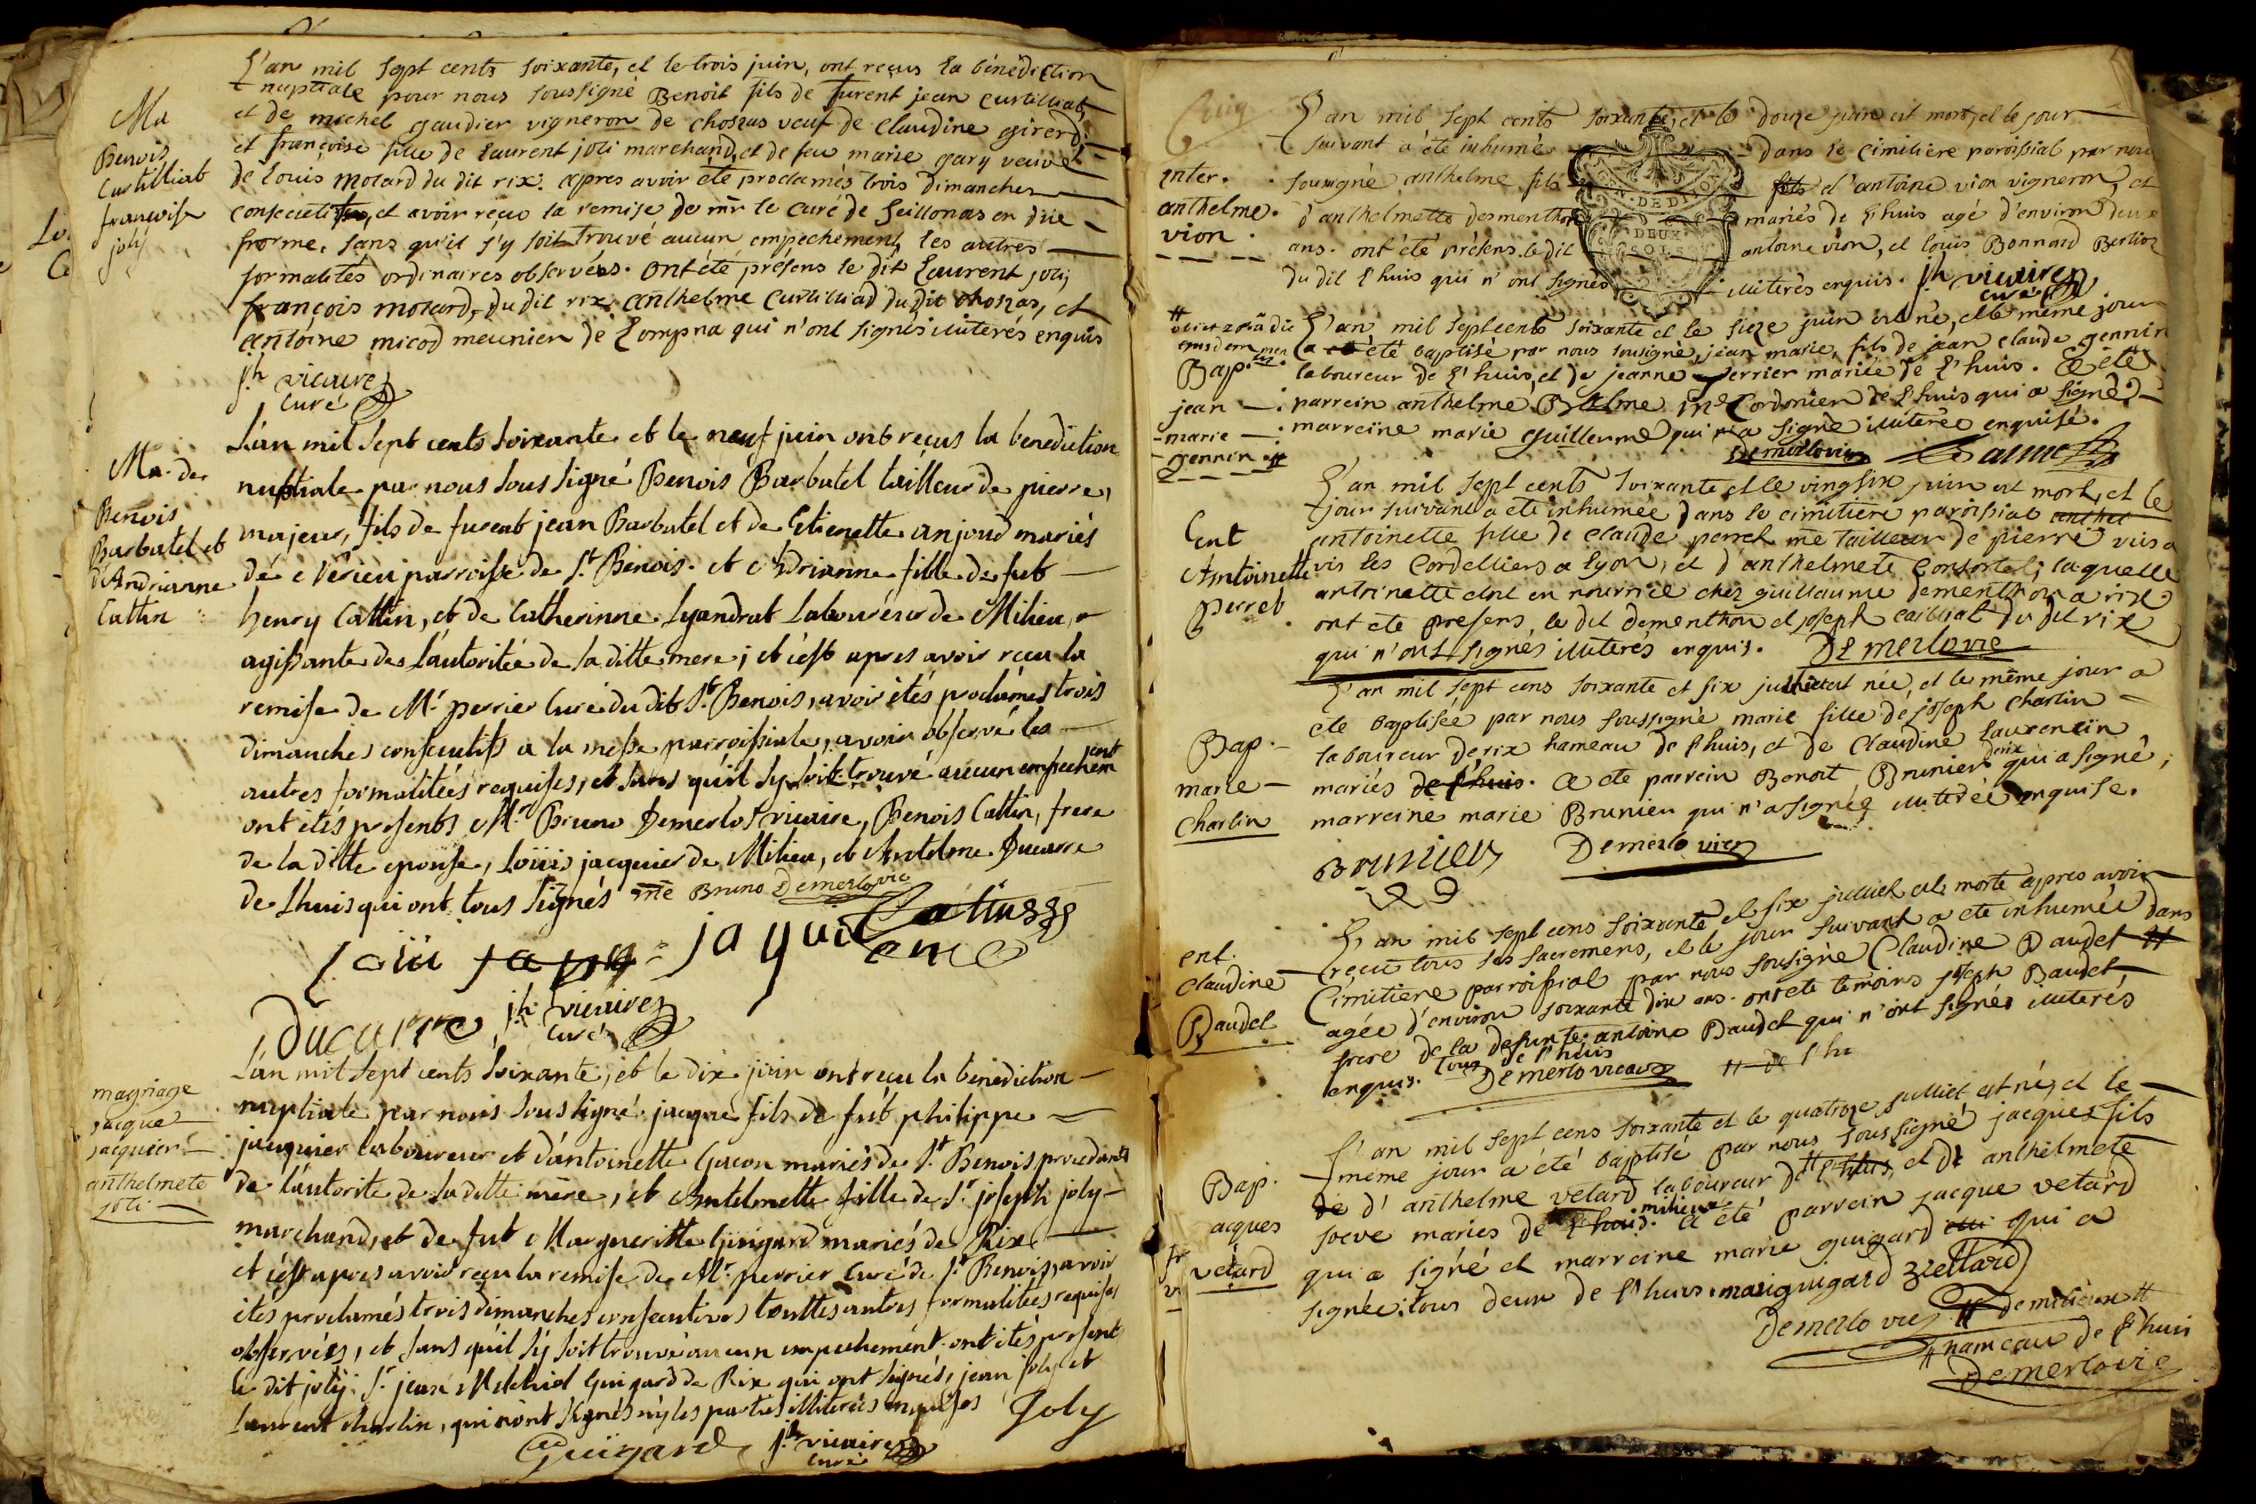 L'an mil sept cents soixante, et le trois juin, ont reçus la bénédiction
nuptiale pour nous soussigné Benoit fils de furent jean curtilliat,
et de michel gaudier vigneron de chosas veuf de claudine girerd;
et françoise fille de laurent joli marchand, et de feu marie gary veuve
de louis motard du dit rix. apres avoir été proclamés trois dimanches
consecutifs, et avoir reçu la remise de mr le curé de seillonas en due
forme, sans qu'il s'y soit trouvé aucun empechement, les autres
formalités ordinaires observées. ont été présens le dit laurent joli,
françois motard, du dit rix, anthelme curtilliad du dit chosas, et
antoine micod meunier de Lompna qui n'ont signés illiterés enquis
jh vicaire
curé
Ma
Benois
Curtilliat
françoise
joly
L'an mil sept cents soixante et le neuf juin ont reçus la benediction
nuptiale par nous sous signé Benois Barbatel tailleur de pierre,
majeur, fils de fureat jean Barbatel et de Etienette anjoud mariés
de Verieu parroisse de St Benois. et Adrianne fille de fut
henry Cattin, et de Catherinne Lyandrat Laboureur de Milieu,
agissante de l'autoritée de la ditte mere; et c'est apres avoir reçu la
remise de Mr perrier Curé du dit St Benois, avoir étés proclamés trois
dimanches consecutifs a la messe parroissiale, avoir observé les
autres formalitées requises, et sans qu'il s'y soit trouvé aucun empechement
ont étés presents Mr Bruno Demerlos vicaire, Benois Cattin, frere
de la ditte epouse, Loüis jacquier de Milieu, et Antelme Ducarre
de Lhuis qui ont tous signés Bruno Demerlo vic
Ma. de
Benois
Barbatel et
d'Andrianne
Cattin
Loüi jaquie
Ducarre jh vicaire
curé
L'an mil sept cents soixante, et le dix juin ont reçu la benediction
nuptiale par nous sous signé jacque fils de fut philippe
jacquier laboureur et d'antoinette Gacon mariés de St Benois procedant
de l'autorité de sa ditte mère, et Antelmette fille de Sr joseph joly
marchand, et de fut Margueritte Guigard mariés de Rix
et c'est apres avoir reçu la remise de Mr perrier Curé de St Benois, avoir
étés proclamés trois dimanches consecutives touttes autres formalitées requises
observées, et sans qu'il s'y soit trouvé aucun empechement. ont étés presents
le dit joly: Sr jean Melchiol Guigard de Rix qui ont signés, jean joly et
laurent charlin, qui n'ont signés ny les parties illiterées enquises Joly
Guigard jh vicaire
curé
mariage
jacque
jacquier
anthelmete
joli
L'an mil sept cents soixante, et le douze juin est mort, et le jour
suivant a été inhumé dans le cimitière paroissial par nous
sousigné anthelme fils fils d'antoine vion vigneron, et
d'anthelmette dementhon mariés de l'huis agé d'environ deux
ans. ont été présens le dit antoine vion, et louis Bonnard Bertior
du dit l'huis qui n'ont signés illiterés enquis. jh vicaire
curé
enter.
anthelme.
vion.
DEUX
SOLS
L'an mil sept cents soixante et le sieze juin est né, et le même jour
a été baptisé par nous sousigné, jean marie, fils de jean claude gennin
laboureur de l'huis, et de jeanne perrier mariée de l'huis. a été
parrein anthelme me Cordonier de l'huis qui a signé
marreine marie guillerme qui n'a signé illiterée enquise.
Demerlo vic
Bap.
jean
marie
gennin
L'an mil sept cents soixante et le vingsix juin est mort, et le
jour suivant a été inhumée dans le cimitière paroissial
antoinette fille de claude perret me tailleur de pierre vis a
vis les Cordelliers a Lyon, et d'anthelmete consorte; laquelle
antoinette etoit en nourrice chez guillaume dementhon a rix
ont eté presens, le dit dementhon et joseph cailliat du dit rix
qui n'ont signés illiterés enquis. Demerlo vic
Ent
Antoinette
perret
L'an mil sept cens soixante et six julliet est née, et le même jour a
été baptisée par nous soussigné marie fille de joseph charlin
laboureur de rix hameau de l'huis, et de claudine laurencin
mariés de l'huis. a eté parrein Benoit Brunier de rix qui a signé,
marreine marie Brunieu qui n'a signée illiterée enquise.
Brunier Demerlo vic
Bap.
marie
charlin
L'an mil sept cens soixante et six julliet est morte apres avoir
reçu tous les sacremens, et le jour suivant a eté inhumée dans
Cimitiere parroissial par nous sousigné Claudine Baudet
agée d'environ soixante dix ans. ont eté temoins joseph Baudet,
frere de la defunte antoine Baudet qui n'ont signés illiterés
enquis. tous de l'huis Demerlo vicaire
ent.
claudine
Baudet
L'an mil sept cens soixante et le quatroze julliet est né, et le
même jour a été baptisé par nous soussigné jacques fils
de d'anthelme vetard laboureur d l'huis, et de anthelmete
soeve mariés de l'huis. milieux a été parrein jacque vetard
qui a signé et marreine marie guigard qui a
signée. tous deux de l'huis. marie guigard vettard
Demerlo vic de milieux
hameau de l'huis
Demerlo vic
Bap.
acques
vetard